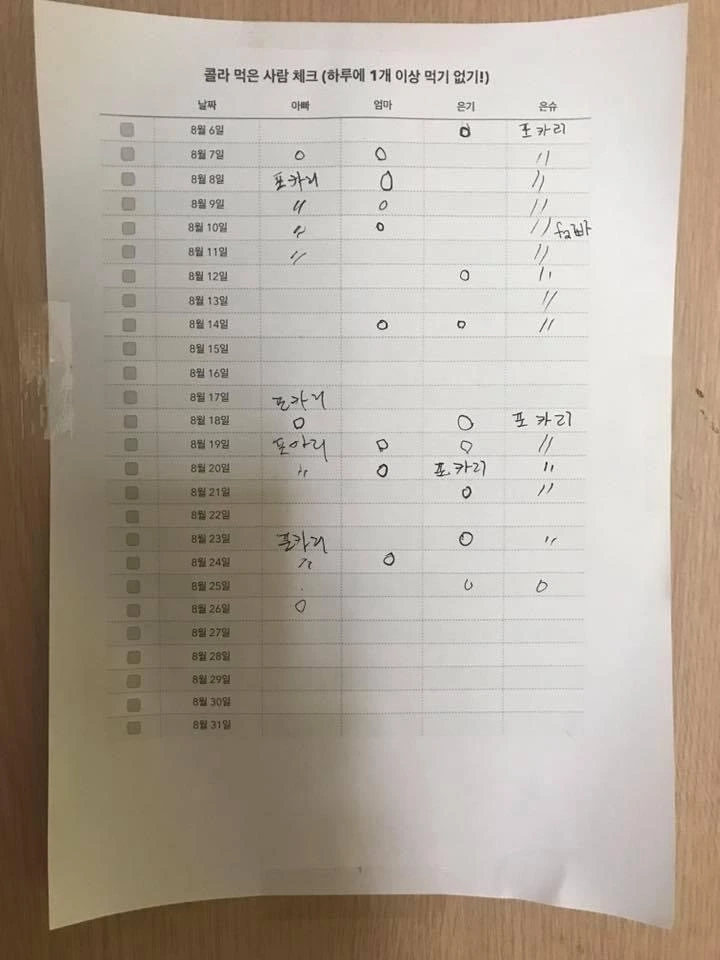 콜라 먹은 사람 체크 (하루에 1개 이상 먹기 없기!)
날짜 아빠 엄마 은기 은슈
8월 6일 O 포카리
8월 7일 O O 〃
8월 8일 포카리 O 〃
8월 9일 〃 O 〃
8월 10일 〃 O 〃
8월 11일 〃 〃
8월 12일 O 〃
8월 13일 〃
8월 14일 O O 〃
8월 15일
8월 16일
8월 17일 포카리
8월 18일 O O 포카리
8월 19일 포카리 O O 〃
8월 20일 〃 O 포카리 〃
8월 21일 O 〃
8월 22일
8월 23일 포카리 O 〃
8월 24일 〃 O
8월 25일 O O
8월 26일 O
8월 27일
8월 28일
8월 29일
8월 30일
8월 31일
1